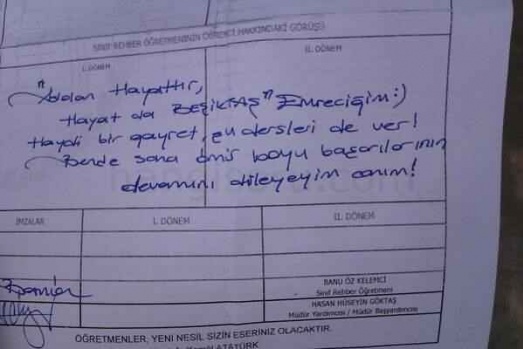 SINIF REHBER ÖĞRETMENİNİN ÖĞRENCİ HAKKINDAKİ GÖRÜŞÜ
I. DÖNEM II. DÖNEM
Hayattır,
Hayat da BEŞİKTAŞ" Emreciğim:)
Haydi bir gayret, şu dersleri de ver!
Bende sana ömür boyu başarılarının
devamını dileyeyim canım!
İMZALAR I. DÖNEM II. DÖNEM
BANU ÖZ KELEMCİ
Sınıf Rehber Öğretmeni
HASAN HÜSEYİN GÖKTAŞ
Müdür Yardımcısı / Müdür Başyardımcısı
ÖĞRETMENLER, YENİ NESİL SİZİN ESERİNİZ OLACAKTIR.
ATATÜRK